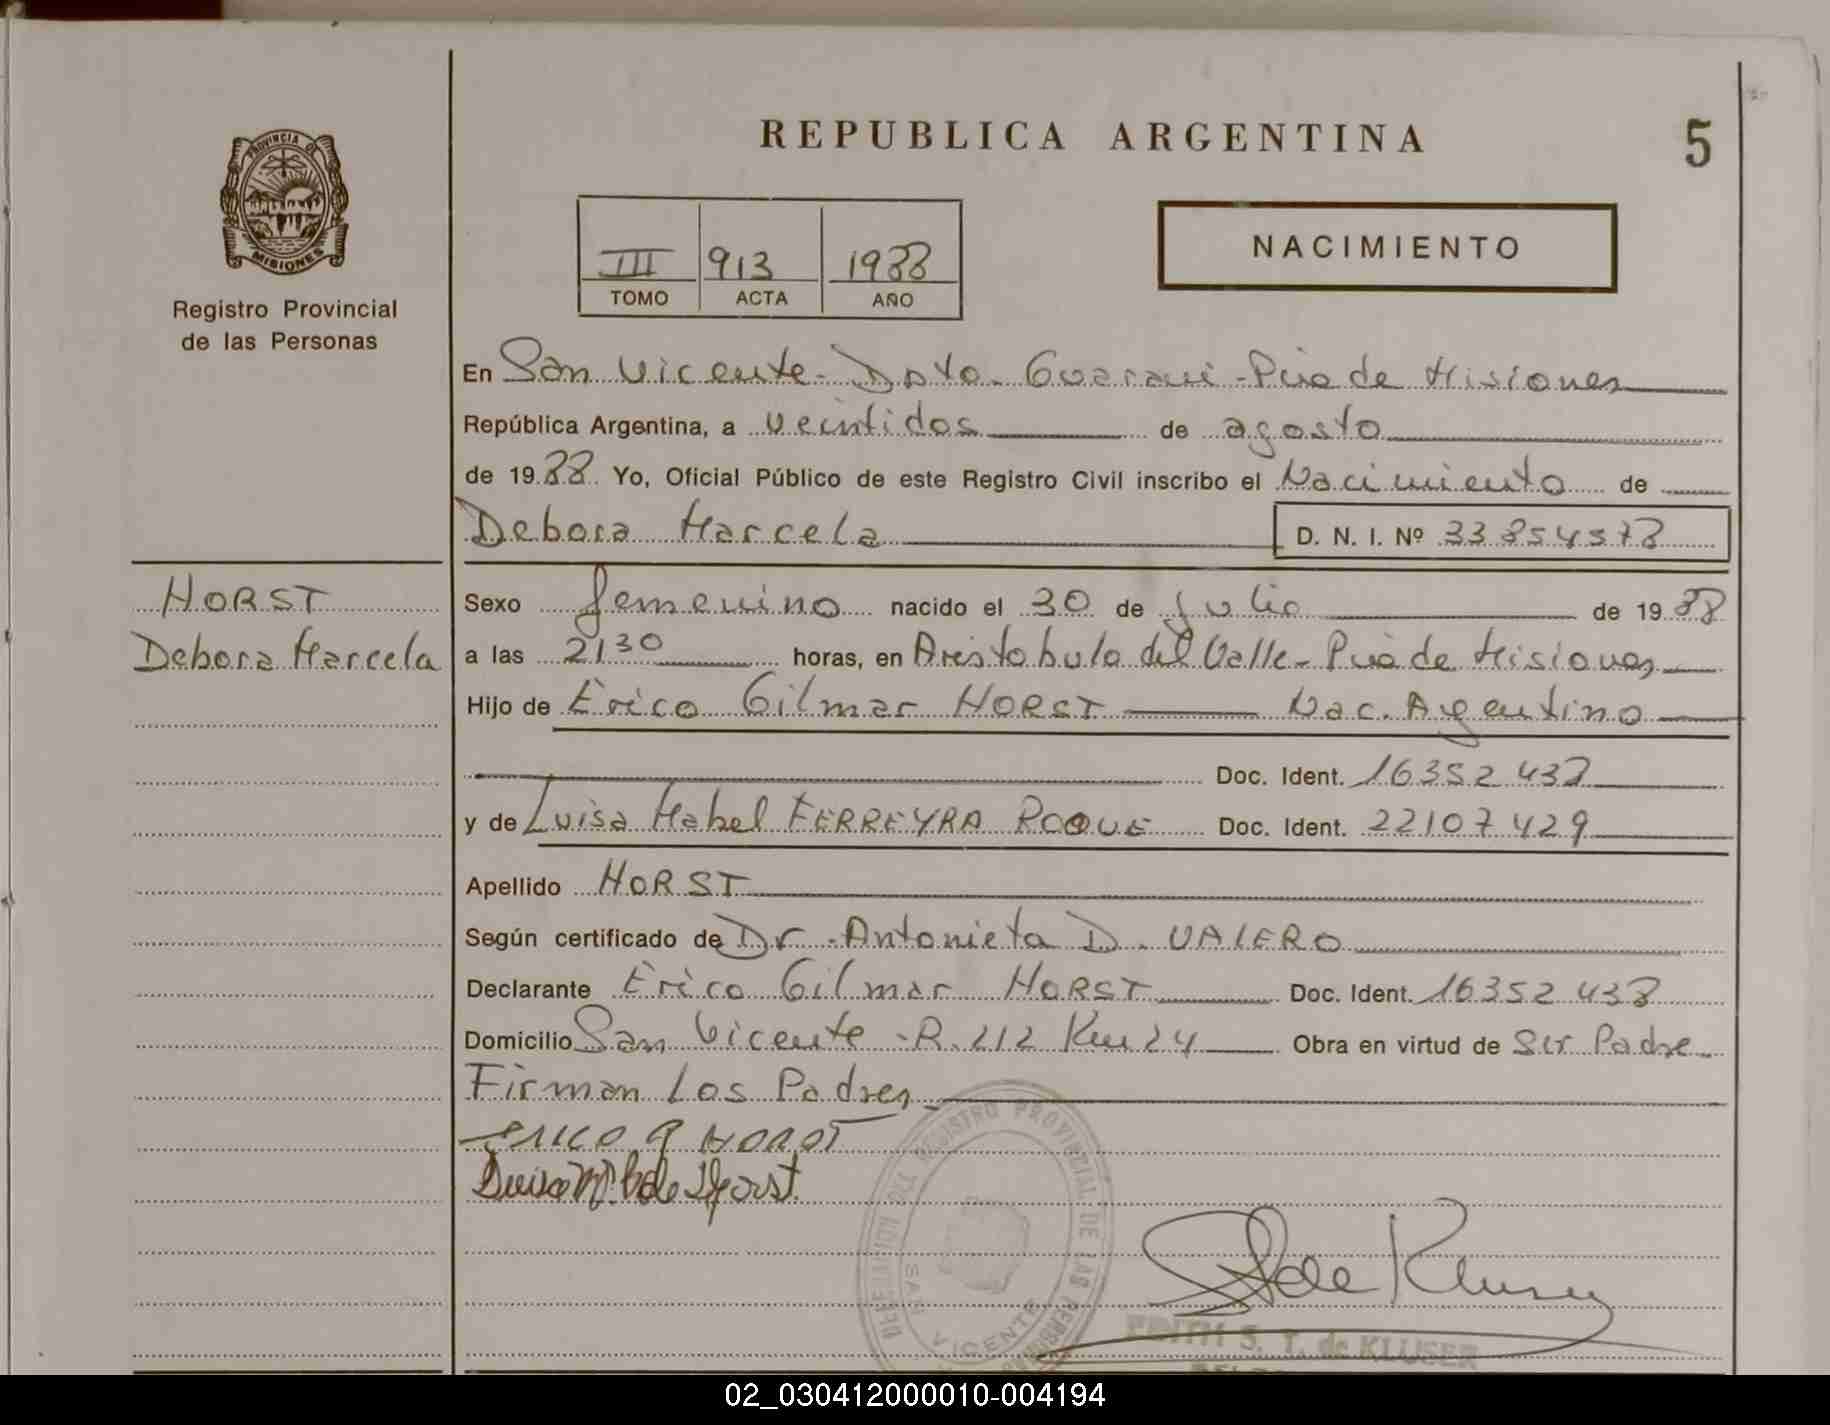 REPUBLICA ARGENTINA
5
PROVINCIA DE
MISIONES
Registro Provincial
de las Personas
III 913 1988
TOMO ACTA AÑO
NACIMIENTO
En San Vicente - Dpto. Guarani - Pcia de Misiones
República Argentina, a veintidos de agosto
de 1988 Yo, Oficial Público de este Registro Civil inscribo el Nacimiento de
Debora Marcela D. N. I. Nº 33 854578
HORST
Debora Marcela
Sexo femenino nacido el 30 de Julio de 1988
a las 21 30 horas, en Aristobulo del Valle - Pcia de Misiones
Hijo de Erico Gilmar HORST Nac. Argentino
Doc. Ident. 16352 438
y de Luisa Mabel FERREYRA ROQUE Doc. Ident. 22107 429
Apellido HORST
Según certificado de Dr. Antonieta D. VALERO
Declarante Erico Gilmar HORST Doc. Ident. 16352 438
Domicilio San Vicente - R. 212 Km 24 Obra en virtud de Ser Padre
Firman Los Padres
ERICO G HORST
Luisa M. de Horst
DELEGACION DEL REGISTRO PROVINCIAL DE LAS PERSONAS
SAN VICENTE
de Kluser
EDITH S. T. de KLUSER
02_030412000010-004194